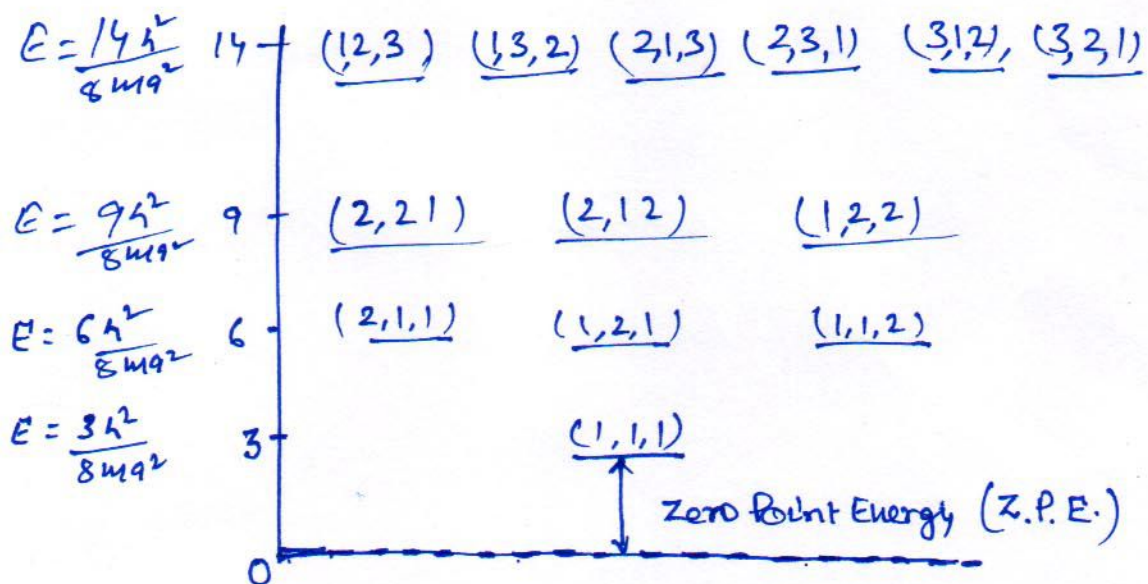 E = 14h²/8ma² 14 (1,2,3) (1,3,2) (2,1,3) (2,3,1) (3,1,2), (3,2,1)
E = 9h²/8ma² 9 (2,21) (2,12) (1,2,2)
E = 6h²/8ma² 6 (2,1,1) (1,2,1) (1,1,2)
E = 3h²/8ma² 3 (1,1,1)
Zero Point Energy (Z.P.E.)
0